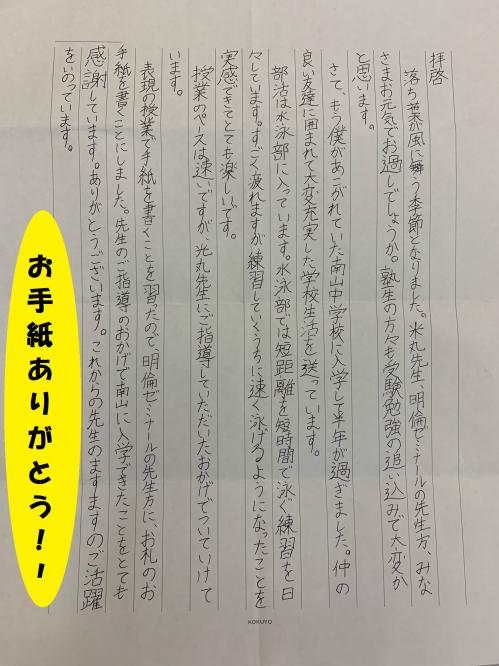 拝啓
落ち葉が風に舞う季節となりました。米丸先生、明倫ゼミナールの先生方、みな
さまお元気でお過しでしょうか。塾生の方々も受験勉強の追い込みで大変か
と思います。
さて、もう僕があこがれていた南山中学校に入学して半年が過ぎました。仲の
良い友達に囲まれて大変充実した学校生活を送っています。
部活は水泳部に入っています。水泳部では短距離を短時間で泳ぐ練習を日
々しています。すごく疲れますが練習していくうちに速く泳げるようになったことを
実感できてとても楽しいです。
授業のペースは速いですが光丸先生にご指導していただいたおかげでついていけて
います。
表現の授業で手紙を書くことを習ったので、明倫ゼミナールの先生方に、お札のお
手紙を書くことにしました。先生のご指導のおかげで南山に入学できたことをとても
感謝しています。ありがとうございます。これからの先生のますますのご活躍
をいのっています。
お手紙ありがとう！！
KOKUYO